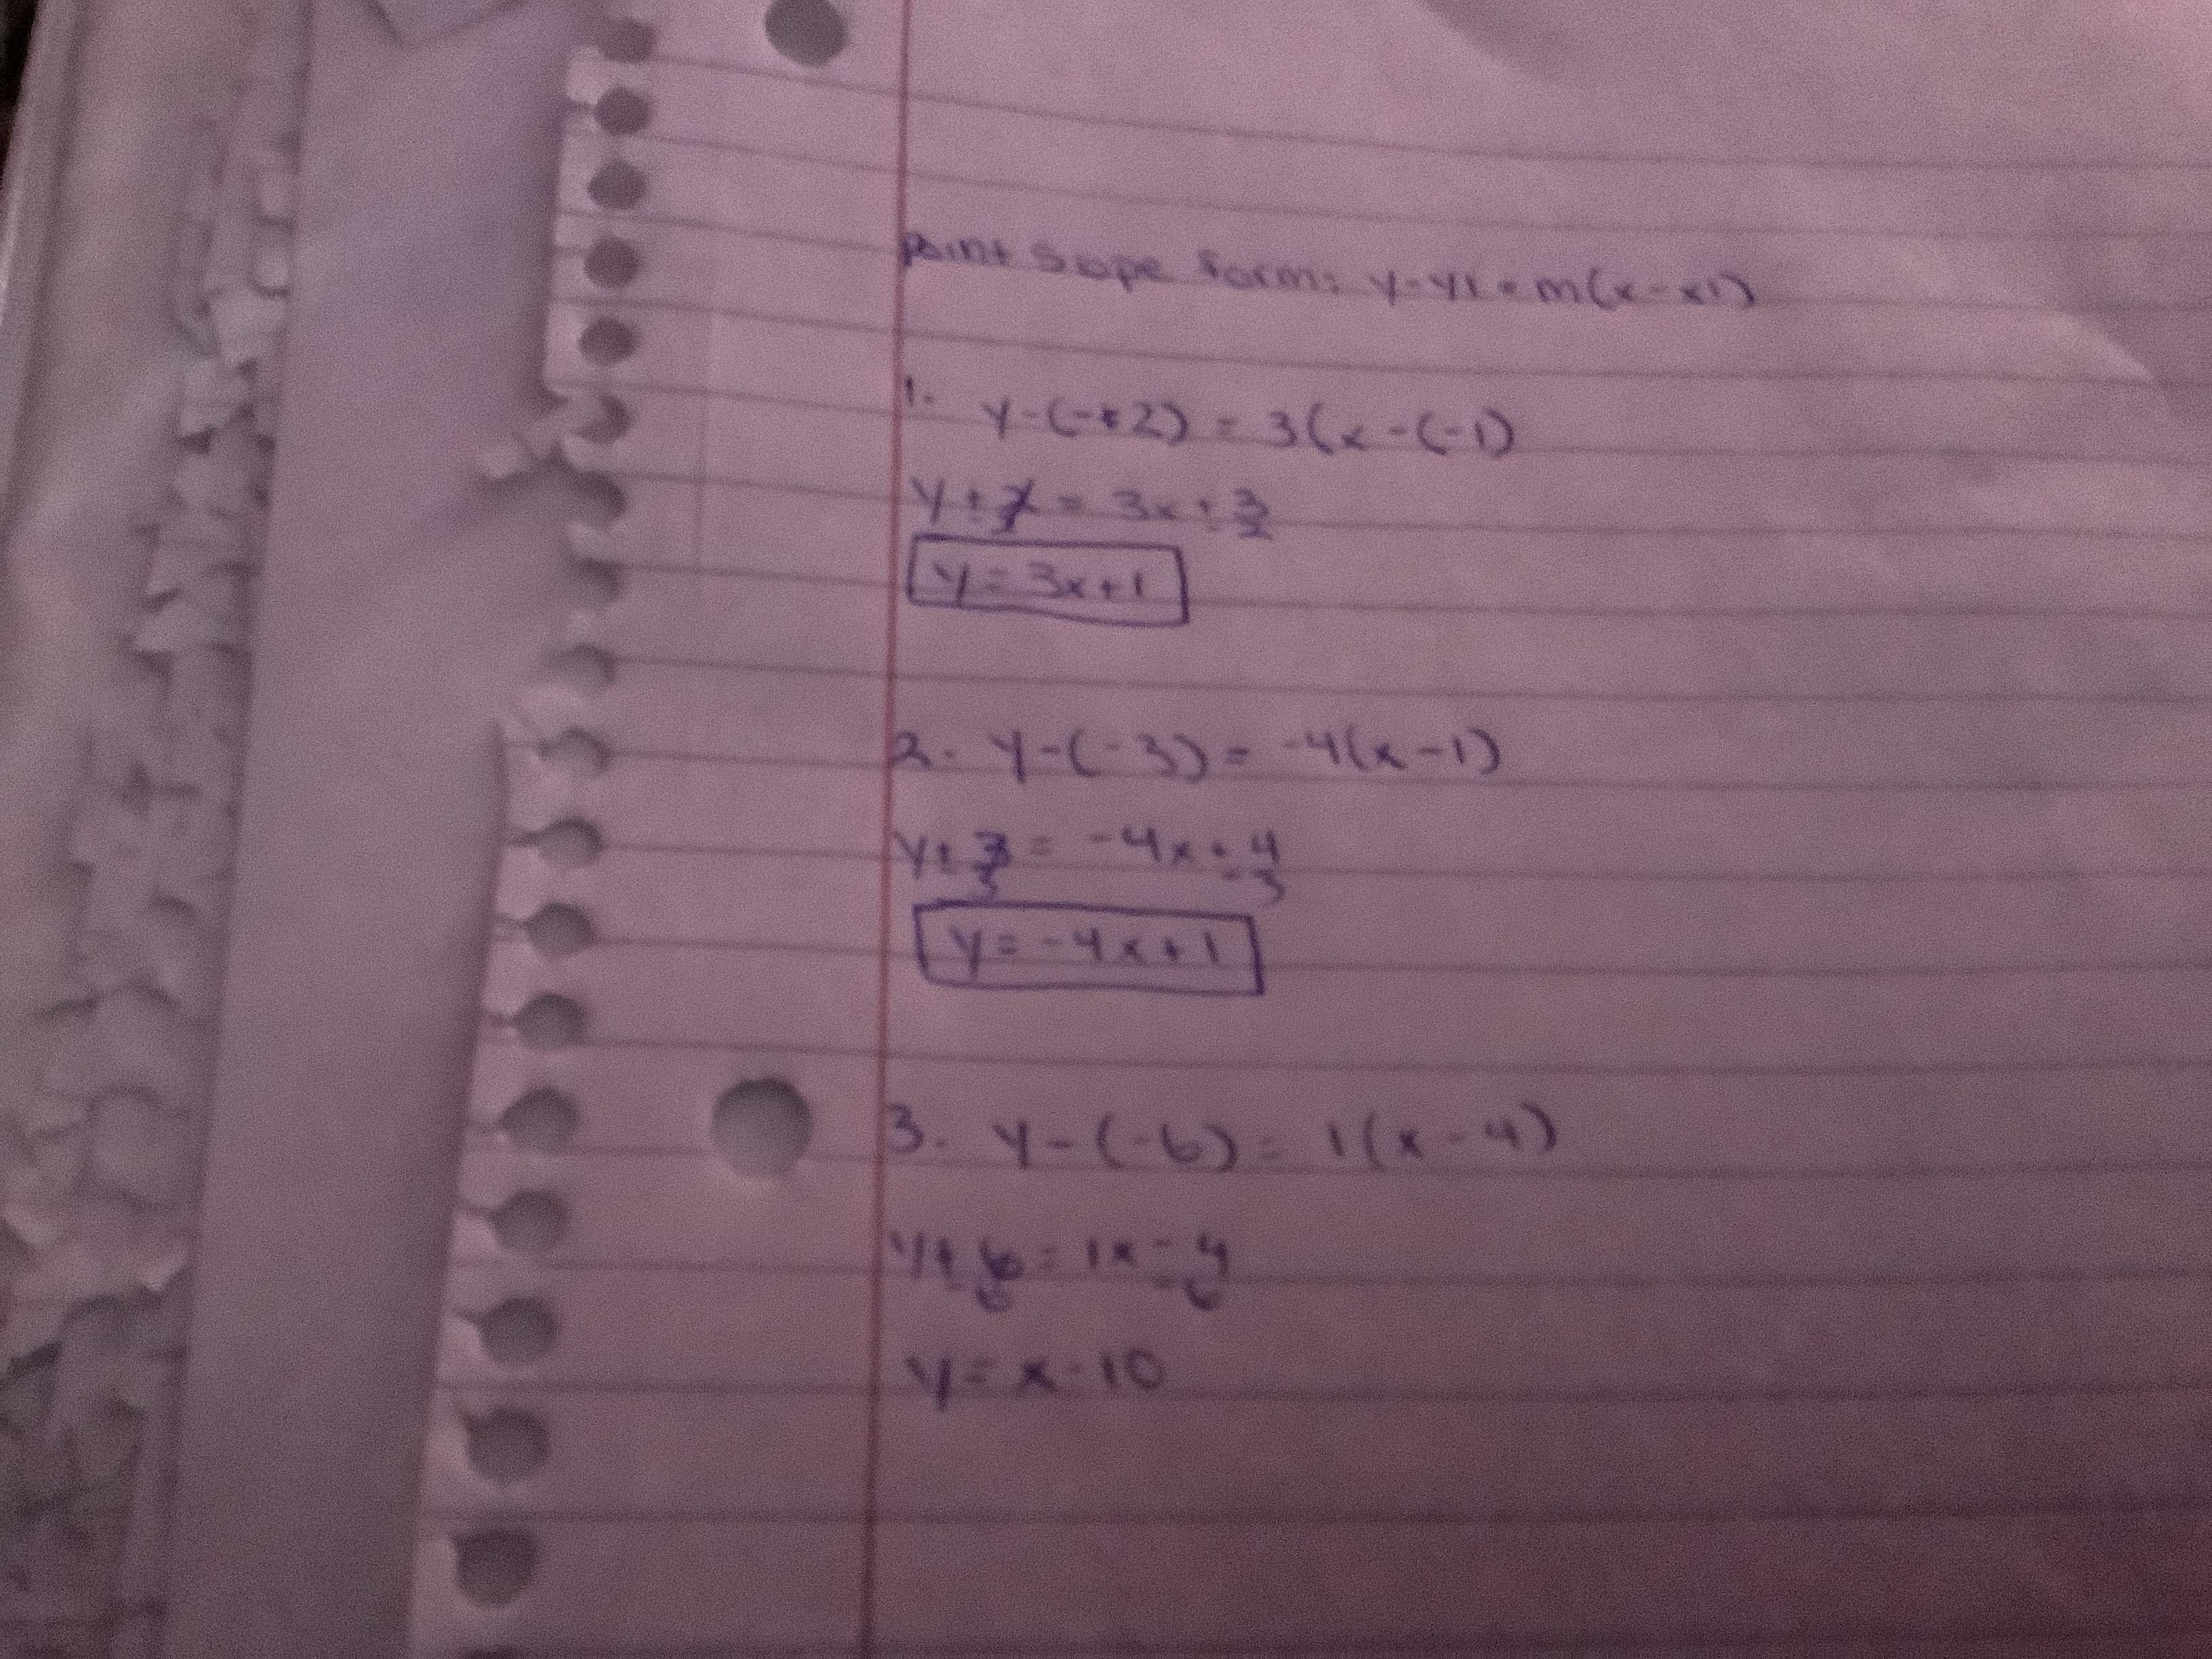 Point Slope form: y-y1=m(x-x1)
1. y-(-+2) = 3(x-(-1)
y+2 = 3x+3
-2 -2
y=3x+1
2. y-(-3) = -4(x-1)
y+3 = -4x+4
-3 -3
y=-4x+1
3. y-(-6) = 1(x-4)
y+6 = 1x-4
-6 -6
y=x-10